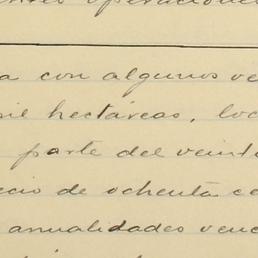 operaciones
a con algunos ve
mil hectáreas, loc
parte del veint
ecio de ochenta ce
anualidades venc